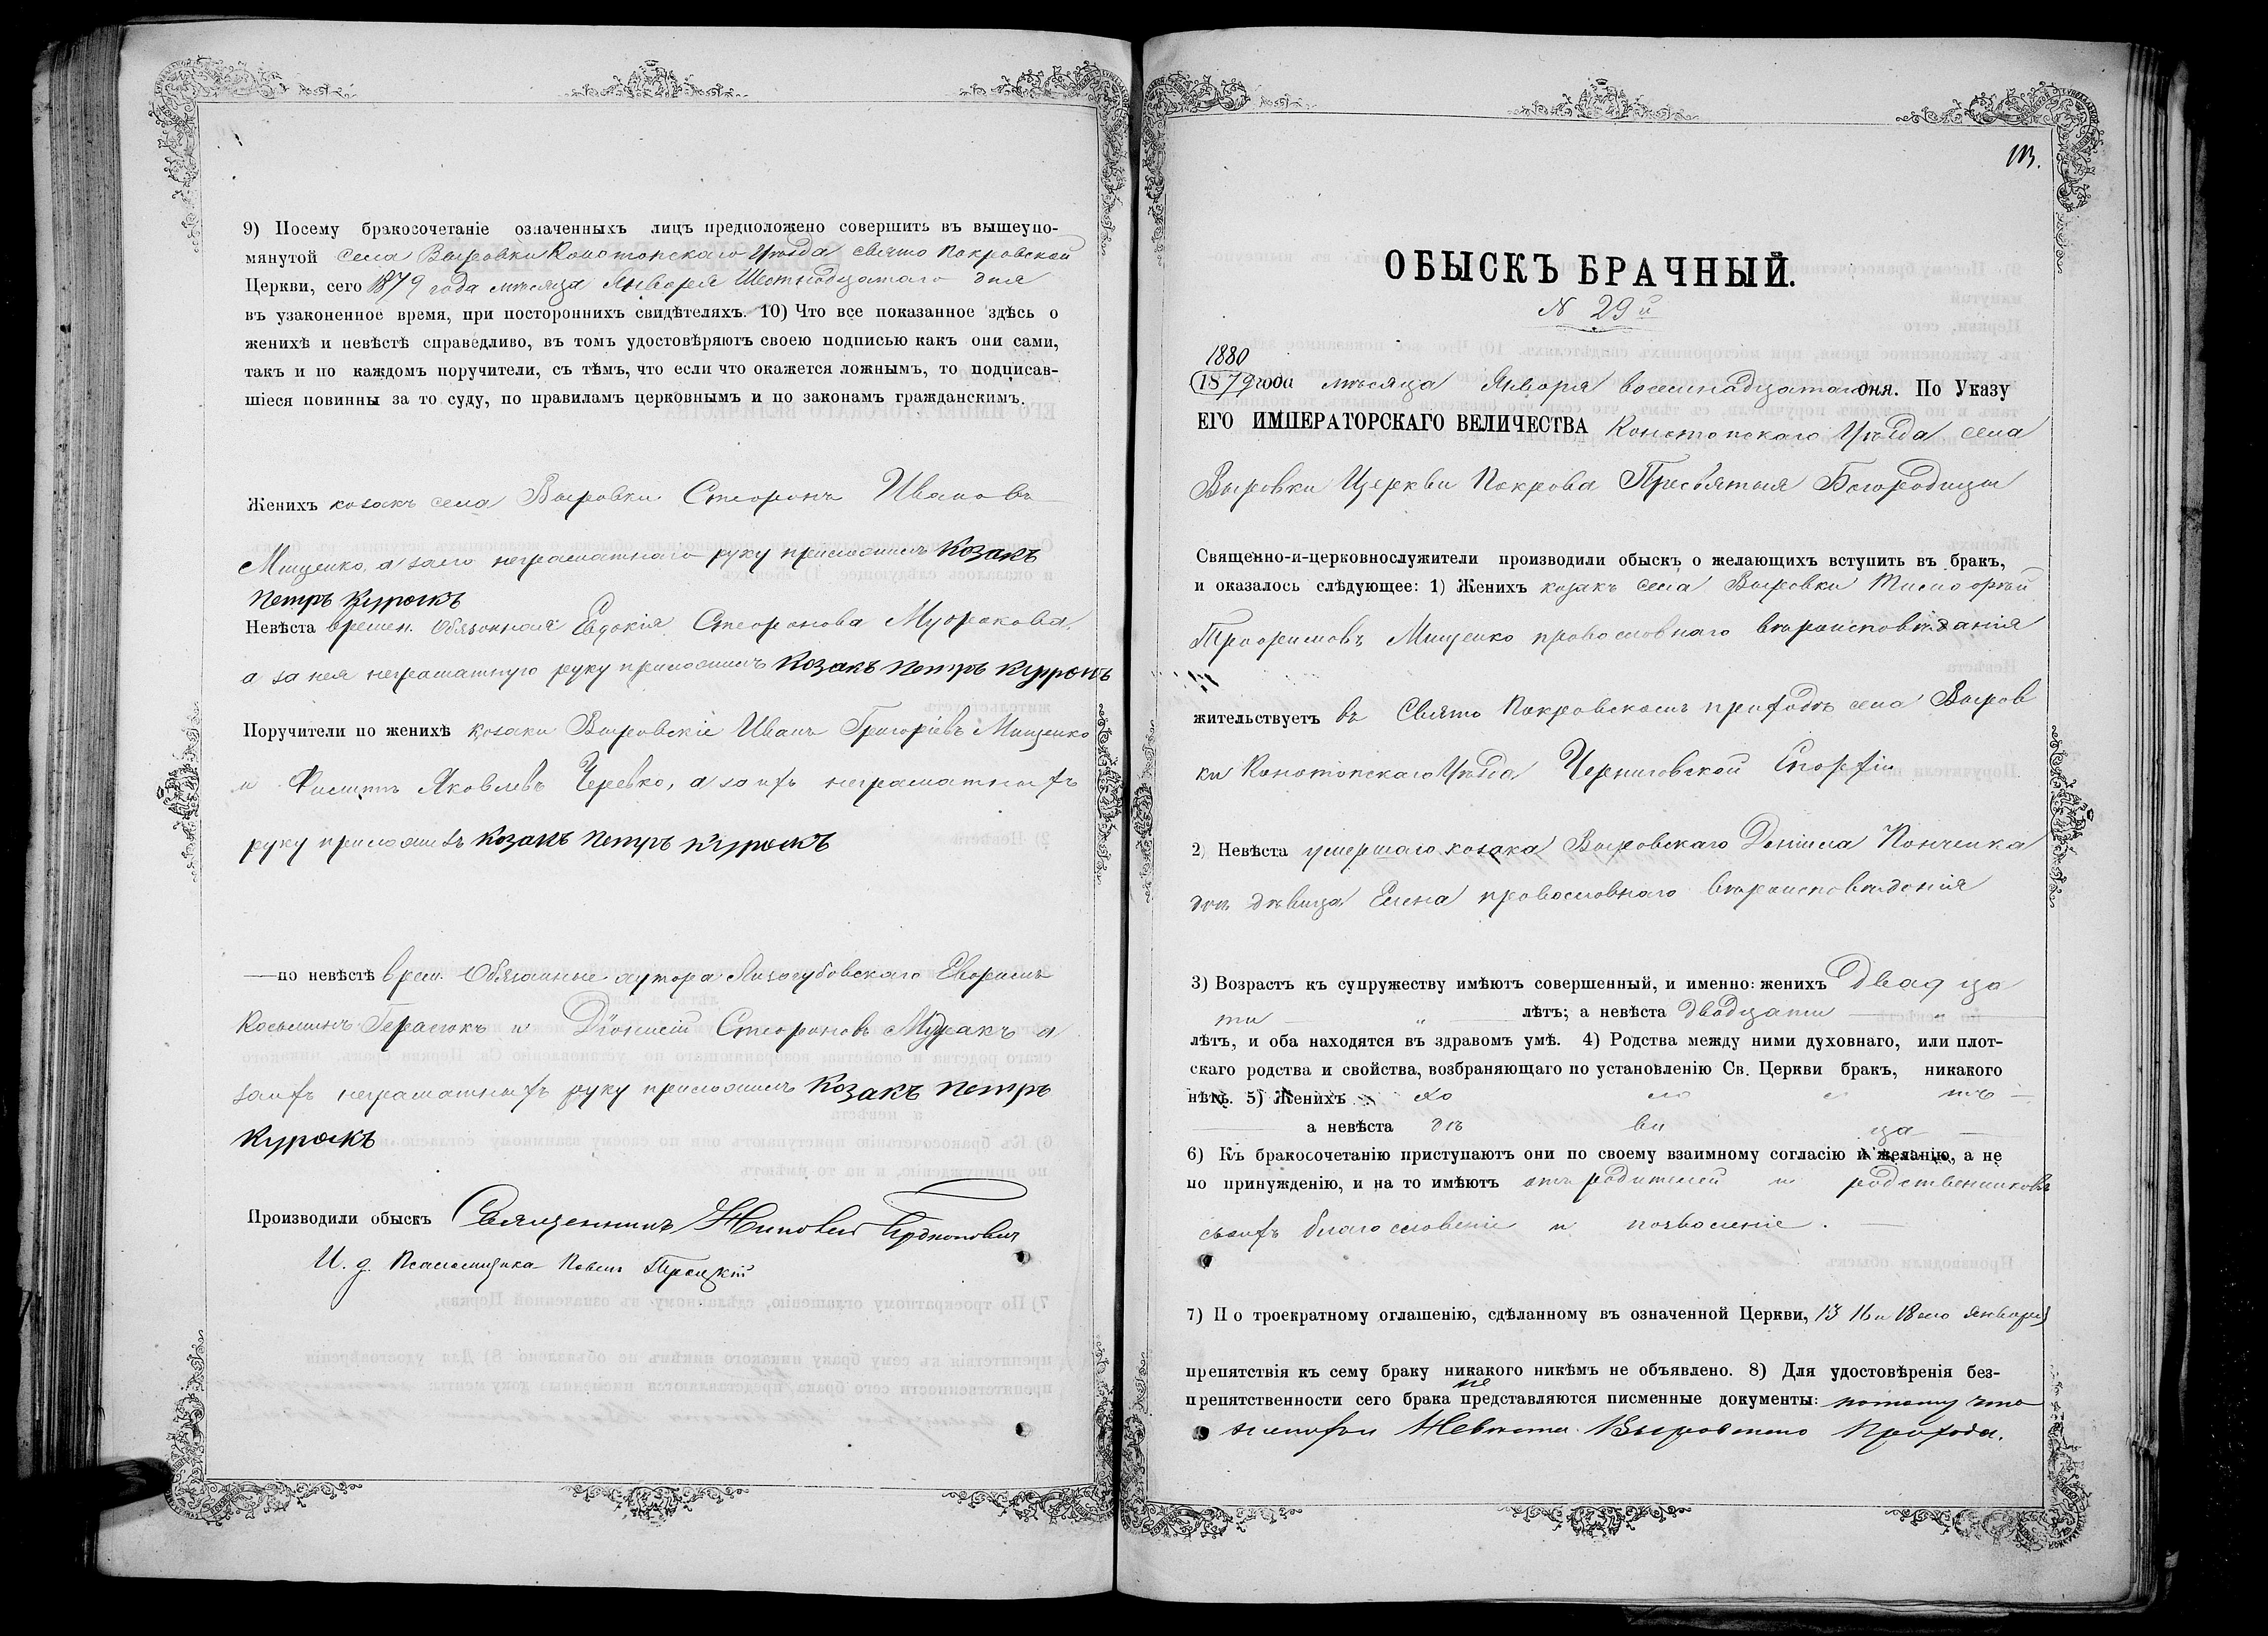 9) Посему бракосочетаніе означенныхъ лицъ предположено совершить въ вышеупо-
мянутой села Выровки Конотопскаго Уѣзда свято Покровской
Церкви, сего 1879 года мѣсяца Января Шестнадцатаго дня
въ узаконенное время, при постороннихъ свидѣтеляхъ. 10) Что все показанное здѣсь о
женихѣ и невѣстѣ справедливо, въ томъ удостовѣряютъ своею подписью какъ они сами,
такъ и по каждомъ поручители, съ тѣмъ, что если что окажется ложнымъ, то подписав-
шіеся повинны за то суду, по правиламъ церковнымъ и по законамъ гражданскимъ.
Женихъ козакъ села Выровки Стефанъ Ивановъ
Мищенко, а заего неграматнаго руку приложилъ Козакъ
Петръ
Невѣста времен. Обязанная Евдокія Стефанова
а за нея неграматную руку приложилъ Козакъ Петръ
Поручители по женихѣ козаки Выровскіе Иванъ Григоріевъ Мищенко
и Филипъ Яковлевъ Черевко, а заихъ неграматныхъ
руку приложилъ Козакъ Петръ
—по невѣстѣ врем. Обязанные хутора Лизогубовскаго
Косьминъ Герасюкъ и Діонисій Стефановъ а
заихъ неграматныхъ руку приложилъ Козакъ Петръ
Производили обыскъ Священникъ
И. д. Псаломщика Павелъ Троицкій
113.
ОБЫСКЪ БРАЧНЫЙ.
N 29й
1880
1879 года мѣсяца Января восемнадцатаго дня. По Указу
ЕГО ИМПЕРАТОРСКАГО ВЕЛИЧЕСТВА Конотопскаго Уѣзда села
Выровки Церкви Покрова Пресвятыя Богородицы
Священно-и-церковнослужители производили обыскъ о желающихъ вступить въ бракъ,
и оказалось слѣдующее: 1) Женихъ козакъ села Выровки Тимофѣй
Трофимовъ Мищенко православнаго вѣроисповѣданія
жительствуетъ въ Свято Покровскомъ приходѣ села Выров
ки Конотопскаго Уѣзда Черниговской Епархіи
2) Невѣста умершаго козака Выровскаго Даніила Панченка
дѣвица Елена православнаго вѣроисповѣданія
3) Возрастъ къ супружеству имѣютъ совершенный, и именно: женихъ двадца
ти „ лѣтъ; а невѣста двадцати „
лѣтъ, и оба находятся въ здравомъ умѣ. 4) Родства между ними духовнаго, или плот-
скаго родства и свойства, возбраняющаго по установленію Св. Церкви бракъ, никакого
нѣтъ. 5) Женихъ хо ло с тъ
а невѣста дѣ ви ца
6) Къ бракосочетанію приступаютъ они по своему взаимному согласію и желанію, а не
по принужденію, и на то имѣютъ отъ родителей и родственниковъ
своихъ благословеніе и позволеніе.
7) По троекратному оглашенію, сдѣланному въ означенной Церкви, 13 16 и 18 его Января
препятствія къ сему браку никакого никѣмъ не объявлено. 8) Для удостовѣренія без-
препятственности сего брака не представляются писменные документы: потому что
женихъ и Невѣста Выровскаго Прихода.